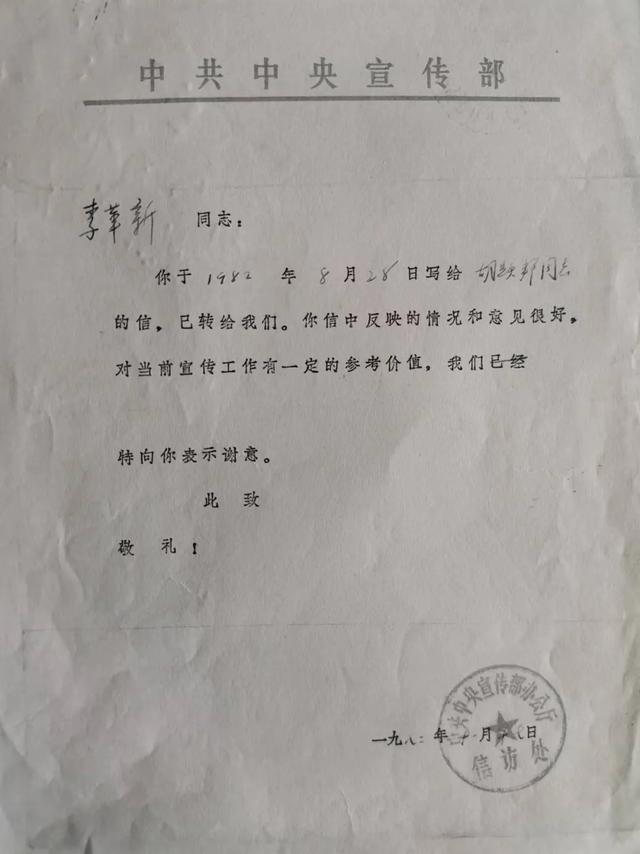 中共中央宣传部
李革新 同志：
你于1982年8月28日写给胡耀邦同志
的信，已转给我们。你信中反映的情况和意见很好，
对当前宣传工作有一定的参考价值，我们已经
特向你表示谢意。
此 致
敬 礼！
中共中央宣传部办公厅
信访处
一九八二年十月 日